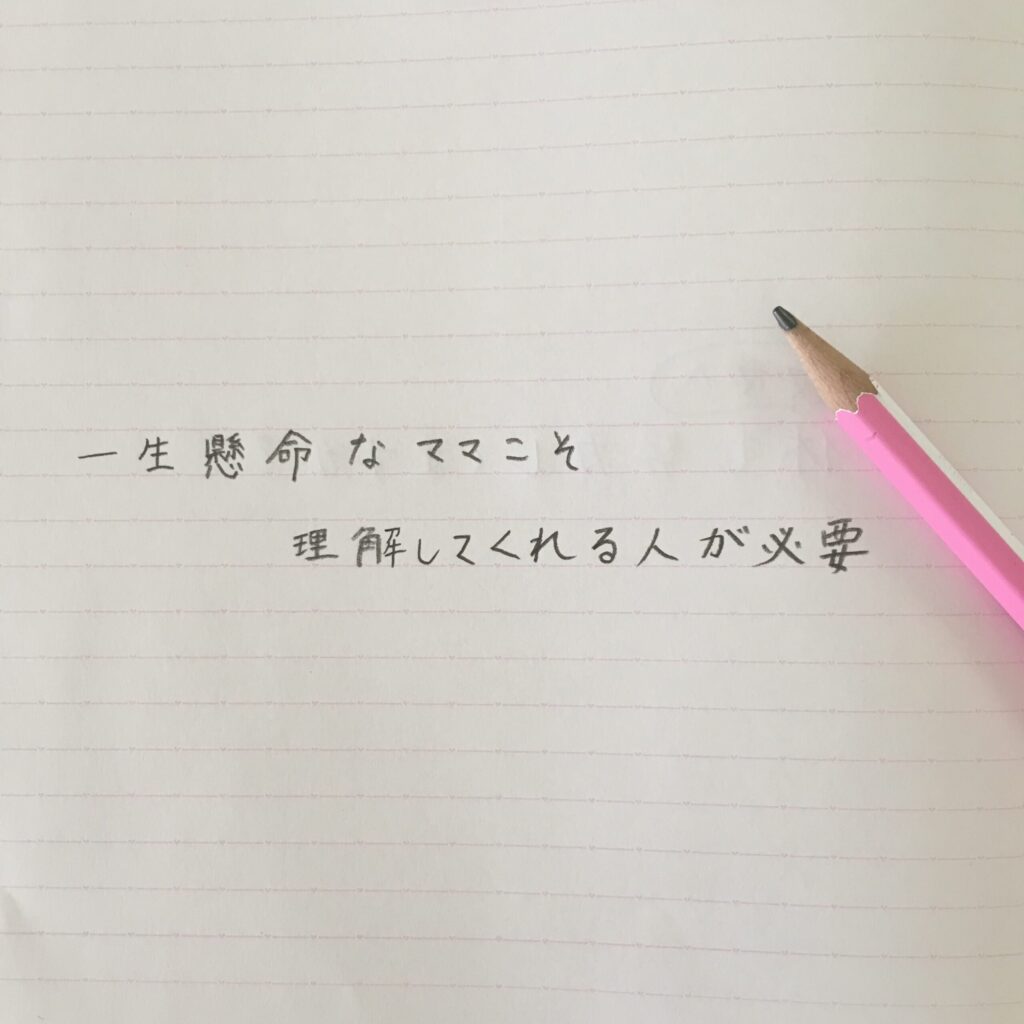 一生懸命なママこそ
理解してくれる人が必要